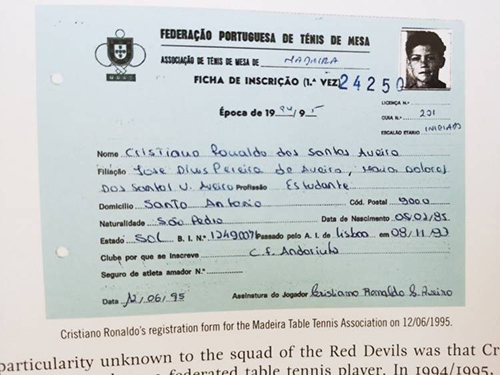 FEDERAÇÃO PORTUGUESA DE TÉNIS DE MESA
ASSOCIAÇÃO DE TÉNIS DE MESA DE MADEIRA
FICHA DE INSCRIÇÃO (1.ª VEZ) 24250
LICENÇA N.º
Época de 1994/95
GUIA N.º 201
ESCALÃO ETÁRIO INICIADO
Nome Cristiano Ronaldo dos Santos Aveiro
Filiação José Dinis Pereira de Aveiro, Maria Dolores
dos Santos V. Aveiro Profissão Estudante
Domicílio Santo António Cód. Postal 9000
Naturalidade São Pedro Data de Nascimento 05.02.85
Estado SOL. B. I. N.º Passado pelo A. I. de Lisboa em 08/11/93
Clube por que se inscreve C.F. Andorinha
Seguro de atleta amador N.º
Data 12/06/95 Assinatura do Jogador Cristiano Ronaldo S. Aveiro
Cristiano Ronaldo's registration form for the Madeira Table Tennis Association on 12/06/1995.
particularity unknown to the squad of the Red Devils was that Cr
a federated table tennis player. In 1994/1995,